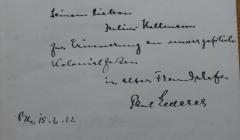 Seinem lieben
Julius Hellmann
zur Erinnerung an unvergeßliche
Kolonial
in alter Freundschaft
Paul Lederer
15.2.22